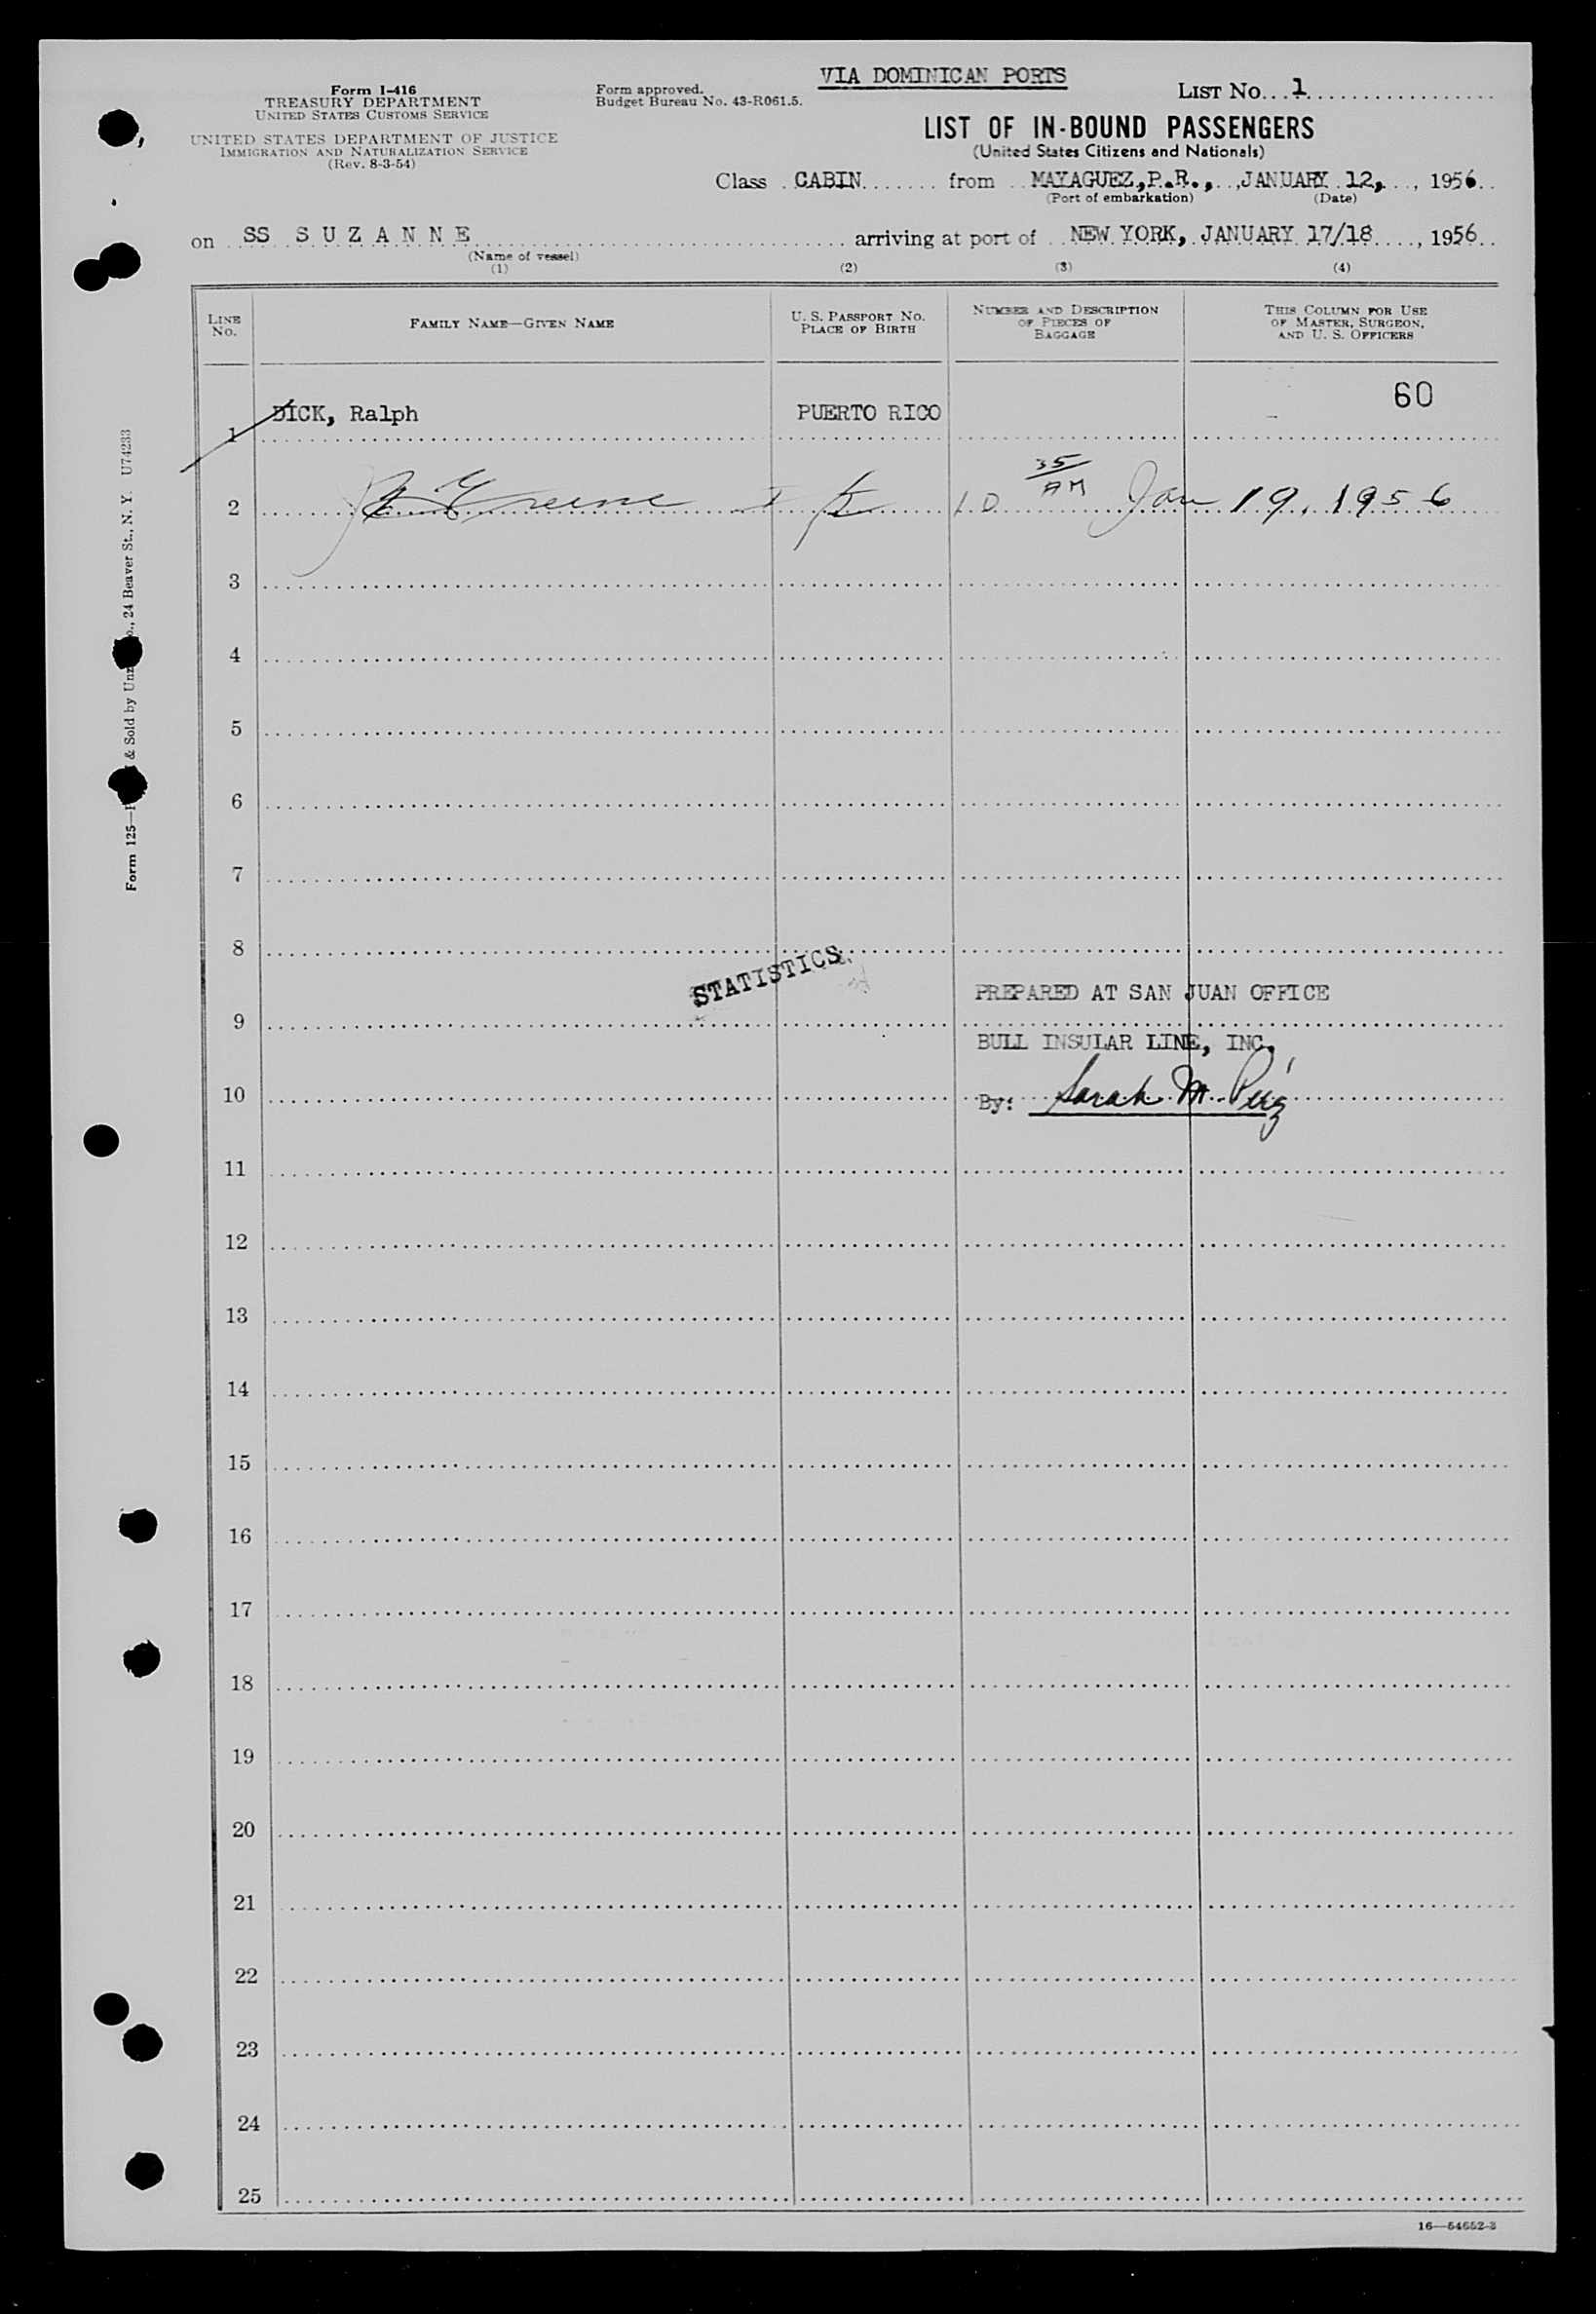 VIA DOMINICAN PORTS
Form I-416
TREASURY DEPARTMENT
UNITED STATES CUSTOMS SERVICE
UNITED STATES DEPARTMENT OF JUSTICE
IMMIGRATION AND NATURALIZATION SERVICE
(Rev. 8-3-54)
Form approved.
Budget Bureau No. 43-R061.5.
LIST No. 1
LIST OF IN-BOUND PASSENGERS
(United States Citizens and Nationals)
Class CABIN from MAYAGUEZ, P.R., JANUARY 12, 1956
(Port of embarkation) (Date)
on SS SUZANNE arriving at port of NEW YORK, JANUARY 17/18, 1956
(Name of vessel)
(1) (2) (3) (4)
LINE No.
FAMILY NAME—GIVEN NAME
U. S. PASSPORT No.
PLACE OF BIRTH
NUMBER AND DESCRIPTION
OF PIECES OF
BAGGAGE
THIS COLUMN FOR USE
OF MASTER, SURGEON,
AND U. S. OFFICERS
60
1 DICK, Ralph PUERTO RICO
2 Greene 10 35/AM Jan 19, 1956
3
4
5
6
7
8
STATISTICS
PREPARED AT SAN JUAN OFFICE
9
BULL INSULAR LINE, INC.
10 By: Sarah M.
11
12
13
14
15
16
17
18
19
20
21
22
23
24
25
16—54652-3
Form 125— & Sold by , 24 Beaver St., N. Y. U74233